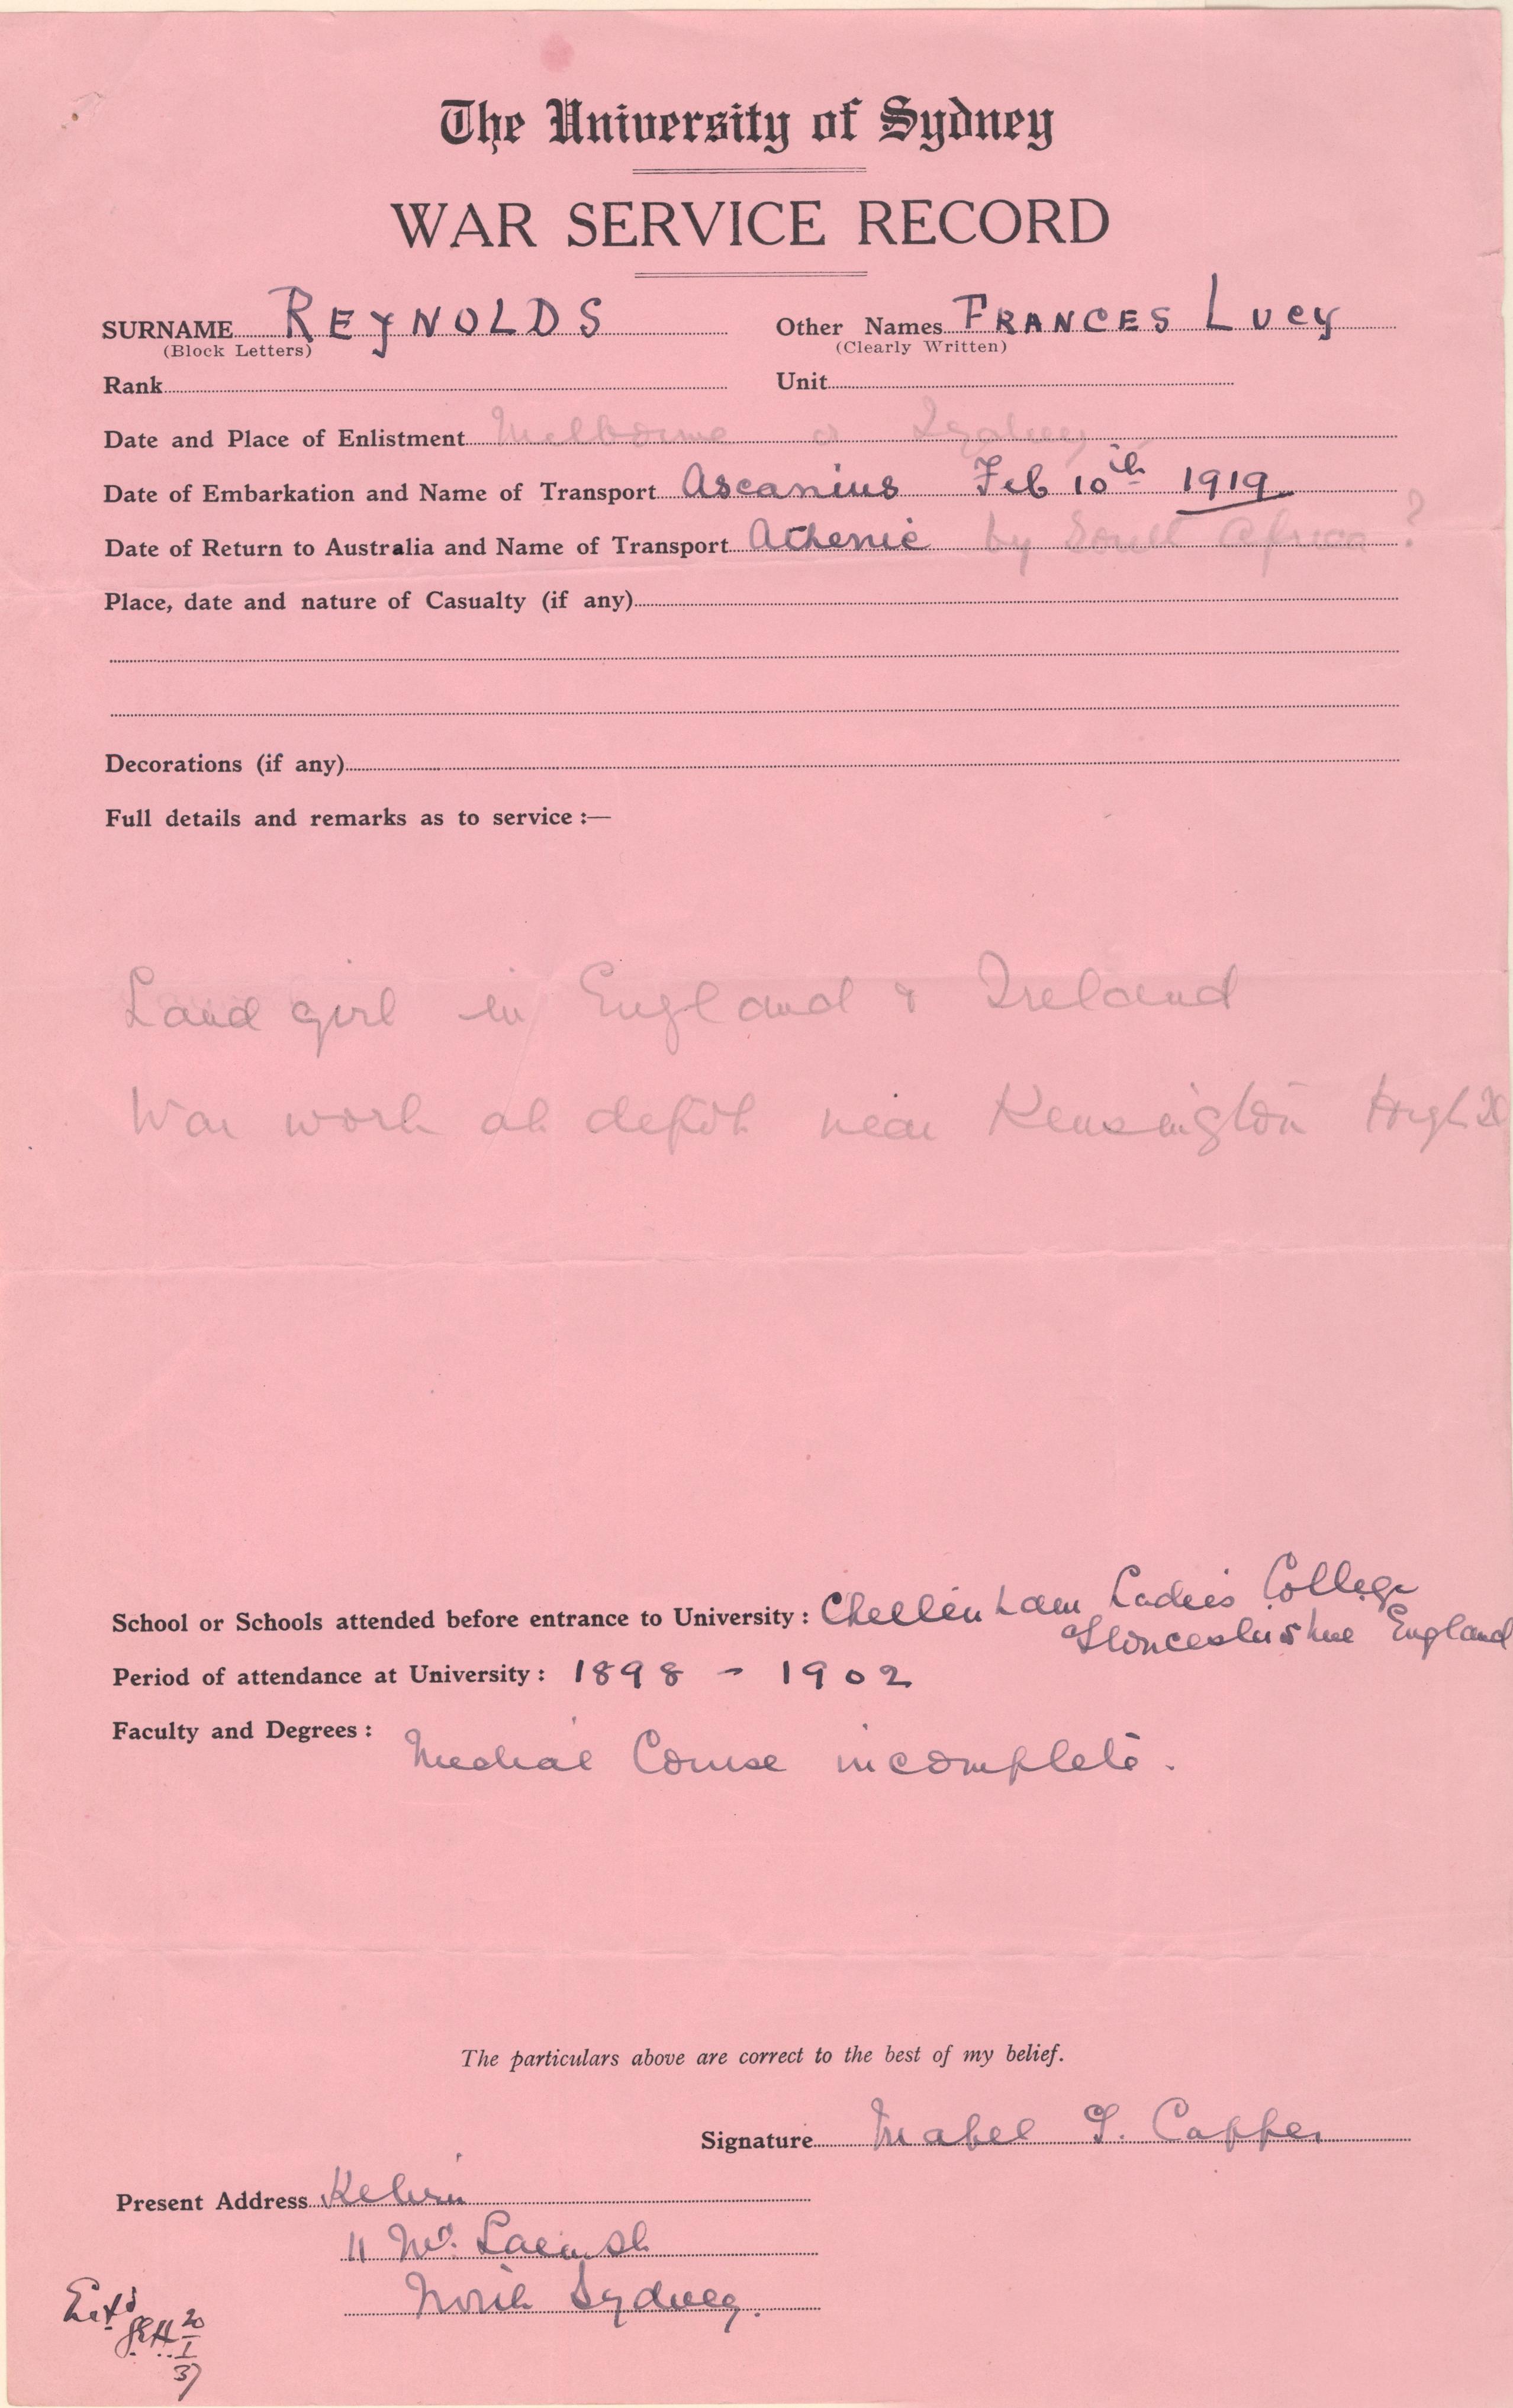 The University of Sydney
WAR SERVICE RECORD
SURNAME REYNOLDS Other Names FRANCES LUCY
(Block Letters) (Clearly Written)
Rank Unit
Date and Place of Enlistment Melbourne or Sydney
Date of Embarkation and Name of Transport Ascanius Feb 10th 1919
Date of Return to Australia and Name of Transport Athenic by South Africa ?
Place, date and nature of Casualty (if any)
Decorations (if any)
Full details and remarks as to service :—
Land girl in England & Ireland
War work at depôt near Kensington High St
School or Schools attended before entrance to University : Cheltenham Ladies College
Gloucestershire England
Period of attendance at University : 1898 - 1902
Faculty and Degrees :
Medical Course incomplete.
The particulars above are correct to the best of my belief.
Signature Mabel J. Capper
Present Address Kelvin
11 St
North Sydney.
Ent'd
20
I
37